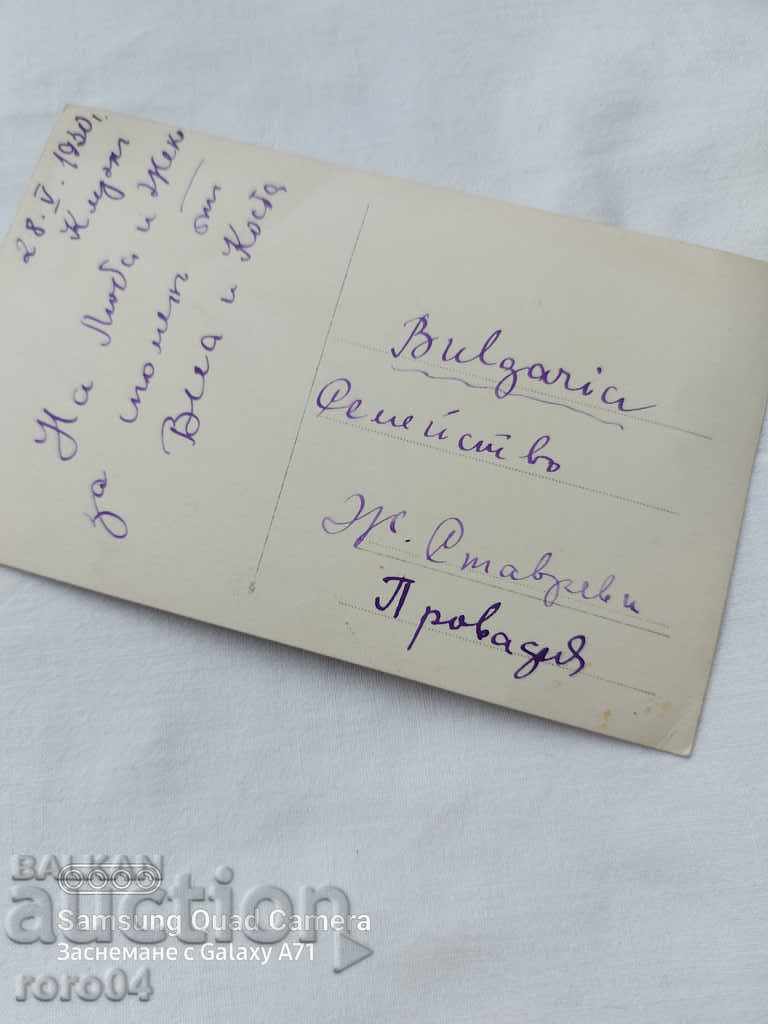 28. V. 1930,
На Люба и Жеко
за спомен от
Веса и Коста
Bulgaria
Семейство
Ж. Ставреви
Провадия
BALKAN
auction
Samsung Quad Camera
Заснемане с Galaxy A71
roro04